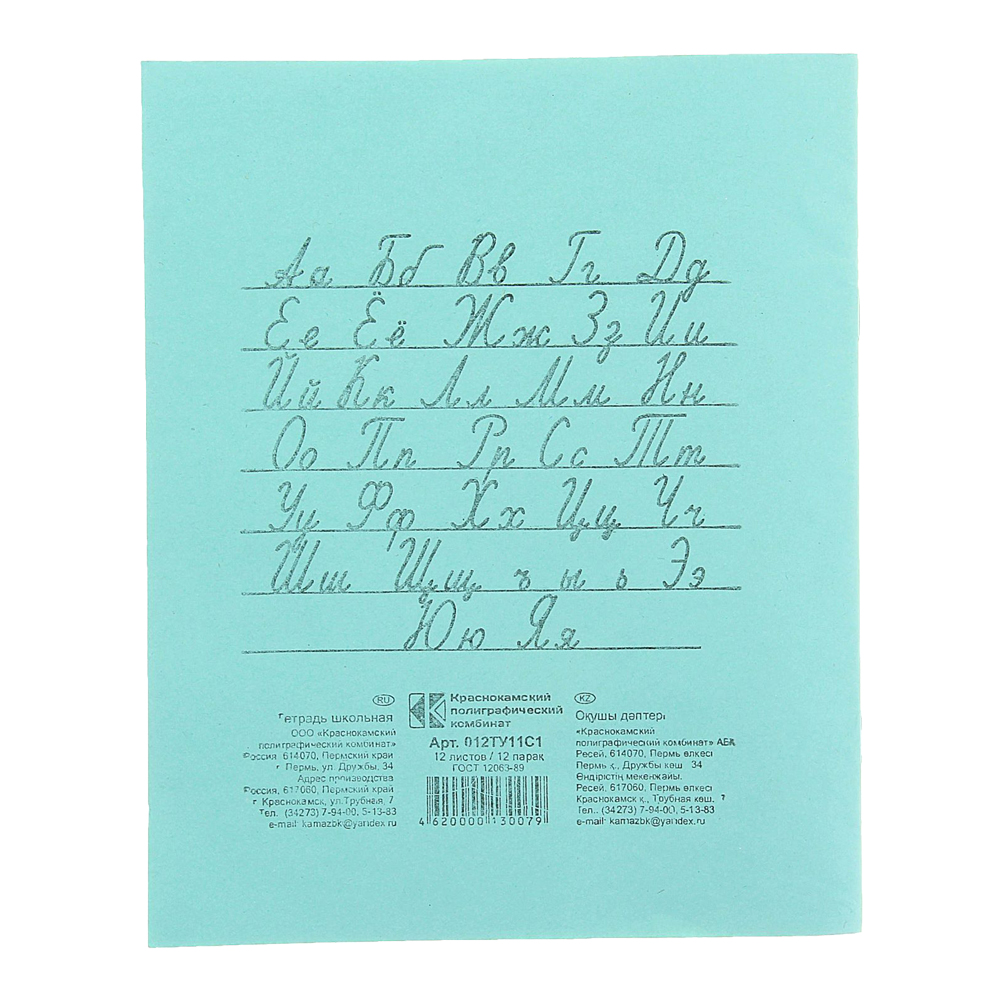 Аа Бб Вв Гг Дд
Ее Ёё Жж Зз Ии
Йй Кк Лл Мм Нн
Оо Пп Рр Сс Тт
Уу Фф Хх Цц Чч
Шш Щщ ъ ы ь Ээ
Юю Яя
RU
Тетрадь школьная
ООО «Краснокамский
полиграфический комбинат»
Россия 614070, Пермский край
г Пермь, ул. Дружбы, 34
Адрес производства
Россия, 617060, Пермский край
г Краснокамск, ул.Трубная, 7
Тел., (34273) 7-94-00, 5-13-83
e-mail: kamazbk@yandex.ru
Краснокамский
полиграфический
комбинат
Арт. 012ТУ11С1
12 листов / 12 парақ
ГОСТ 12063-89
4 620000 130079
KZ
Оқушы дәптері
«Краснокамский
полиграфический комбинат» АБҚ
Ресей, 614070, Пермь өлкесі
Пермь қ., Дружбы көш 34
Өндірістің мекенжайы.
Ресей, 617060, Пермь өлкесі
Краснокамск қ., Трубная көш, 7
Тел.. (34273) 7-94-00, 5-13-83
e-mail: kamazbk@yandex.ru